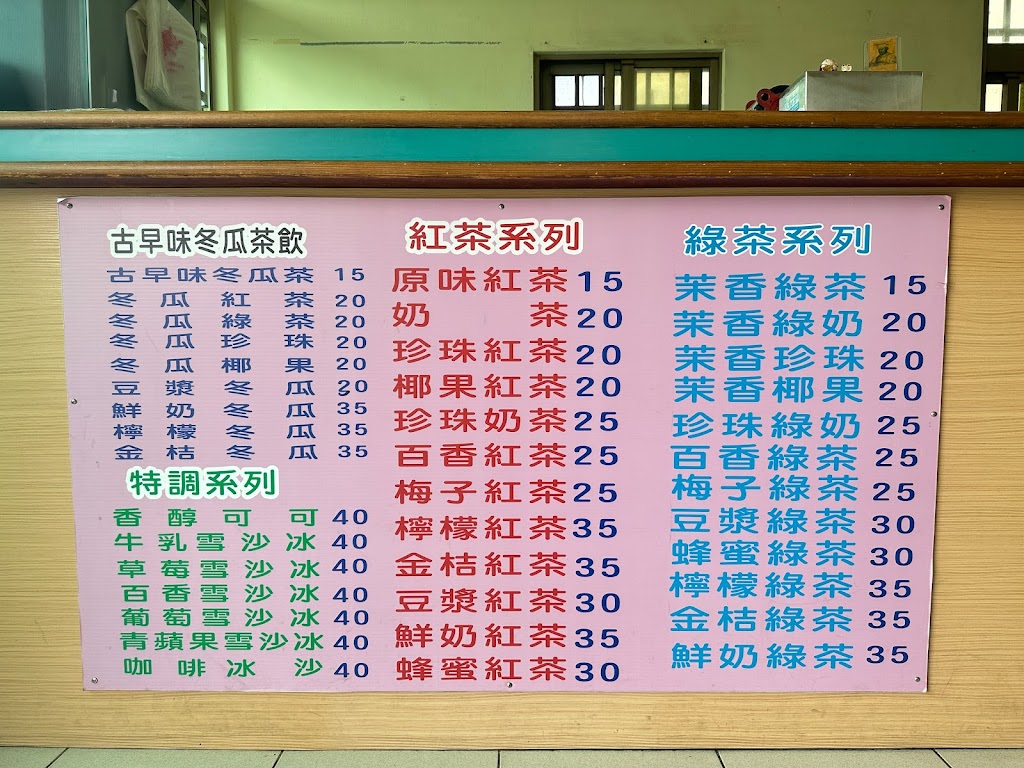 古早味冬瓜茶飲
古早味冬瓜茶 15
冬瓜紅茶 20
冬瓜綠茶 20
冬瓜珍珠 20
冬瓜椰果 20
豆漿冬瓜 20
鮮奶冬瓜 35
檸檬冬瓜 35
金桔冬瓜 35
特調系列
香醇可可 40
牛乳雪沙冰 40
草莓雪沙冰 40
百香雪沙冰 40
葡萄雪沙冰 40
青蘋果雪沙冰 40
咖啡冰沙 40
紅茶系列
原味紅茶 15
奶茶 20
珍珠紅茶 20
椰果紅茶 20
珍珠奶茶 25
百香紅茶 25
梅子紅茶 25
檸檬紅茶 35
金桔紅茶 35
豆漿紅茶 30
鮮奶紅茶 35
蜂蜜紅茶 30
綠茶系列
茉香綠茶 15
茉香綠奶 20
茉香珍珠 20
茉香椰果 20
珍珠綠奶 25
百香綠茶 25
梅子綠茶 25
豆漿綠茶 30
蜂蜜綠茶 30
檸檬綠茶 35
金桔綠茶 35
鮮奶綠茶 35